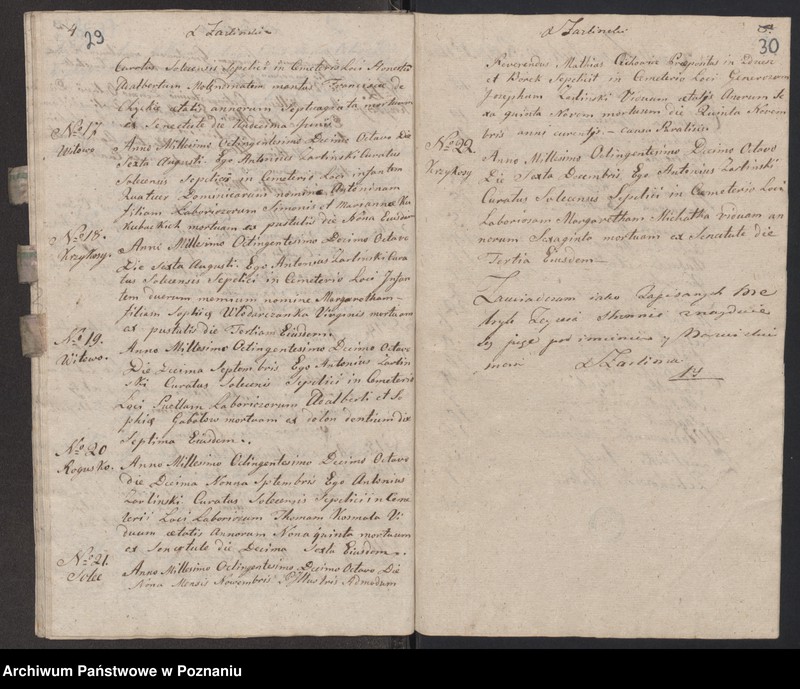 4
29
Żarlinski
Curatus Solecensis Sepelivi in Cemeterio Loci Honestu
Adalbertum Molendinatin
ætatis annorum Septuaginta mortuum
ex Senectute die Undecima Junii
No 17
Witowo
Anno Millesimo Octingentesimo Decimo Octavo Die
Sexta Augusti. Ego Antonius Żarlinski Curatus
Solecensis Sepelivi in Cemeterio Loci infantem
Quatuor Dominicarum nomine Antoninam
Filiam Laboriosorum Simonis et Marianna Ku
mortuam ex pustulis die Nona Eiusdem
No 18.
Krzykosy.
Anno Millesimo Octingentesimo Decimo Octavo
Die Sexta Augusti. Ego Antonius Żarlinski Cura
tus Solecensis Sepelivi in Cemeterio Loci Infan
tem duorum mensium nomine Margaretham
Filiam Sophiæ Włodarczanka Virginis mortuam
ex pustulis die Tertiam Eiusdem
No 19.
Witowo.
Anno Millesimo Octingentesimo Decimo Octavo
Die Decima Septembris Ego Antonius Żarlin
ski Curatus Solecensis Sepelivi in Cemeterio
Loci Puellam Laboriosorum Adalberti et So
phiæ mortuam ex dolore dentium die
Septima Eiusdem.
No 20
Rogusko.
Anno Millesimo Octingentesimo Decimo Octavo
die Decima Nonna Septembris Ego Antonius
Żarlinski Curatus Solecensis Sepelivi in Ceme
terii Loci Laboriosum Thomam Kosmala Vi
duum ætatis Annorum Nonaginta mortuum
ex Senectute die Decima Sexta Eiusdem.
No 21.
Solec
Anno Millesimo Octingentesimo Decimo Octavo Die
Nona Mensis Novembris Illustris Admodum
30
Żarlinski
Reverendus Mathias Præpositus in
et Sepelivit in Cemeterio Loci Generosum
Josephum Viduum ætatis Anorum Se
xaginta Novem mortuum die Quinta Novem
bris anni currentis causa
No 22.
Krzykosy
Anno Millesimo Octingentesimo Decimo Octavo
Die Sexta Decembris Ego Antonius Żarlinski
Curatus Solecensis Sepelivi in Cemeterio Loci
Laboriosam Margaretham Michałka viduam an
norum Sexaginta mortuam ex Senectute die
Tertia Eiusdem
Zaświadczam iako Zapisanych
znayduie
się pod imieniem y
Żarlinski
Archiwum Państwowe w Poznaniu